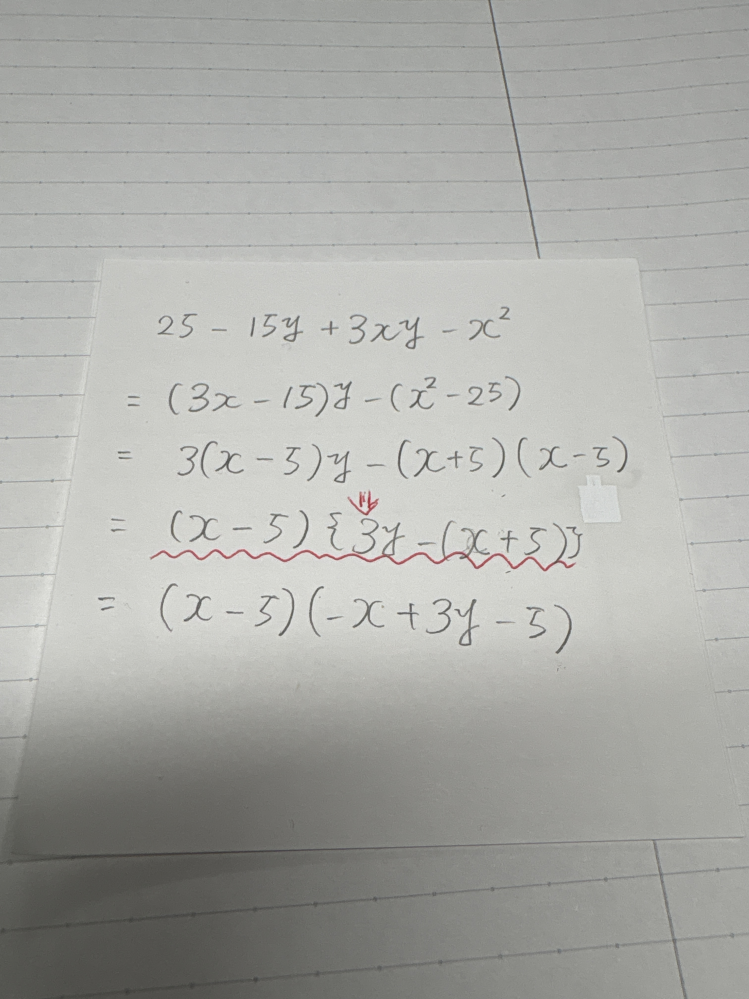 25 - 15y + 3xy - x²
= (3x - 15)y - (x² - 25)
= 3(x - 5)y - (x+5)(x-5)
= (x - 5){3y - (x+5)}
= (x - 5)(-x + 3y - 5)